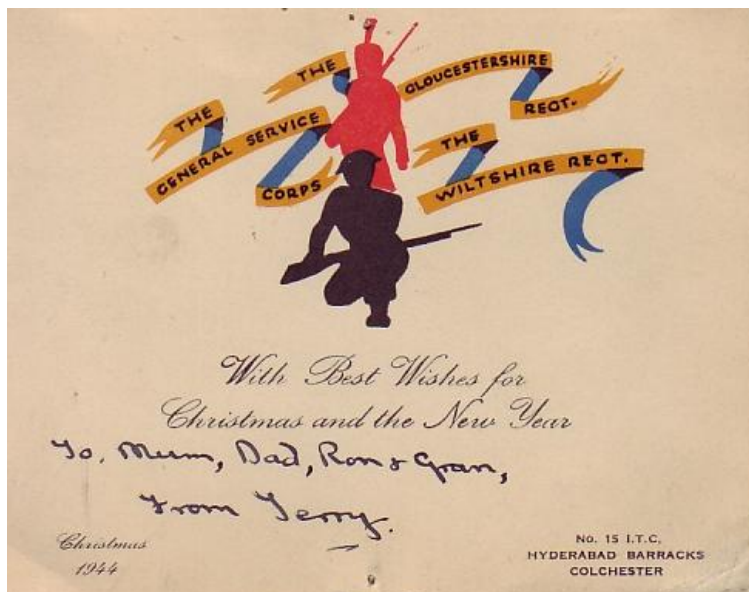 THE
GLOUCESTERSHIRE
REGT.
THE
GENERAL SERVICE
CORPS
THE
WILTSHIRE REGT.
With Best Wishes for
Christmas and the New Year
To. Mum, Dad, Ron & Gran,
From Terry.
Christmas
1944
No. 15 I.T.C,
HYDERABAD BARRACKS
COLCHESTER